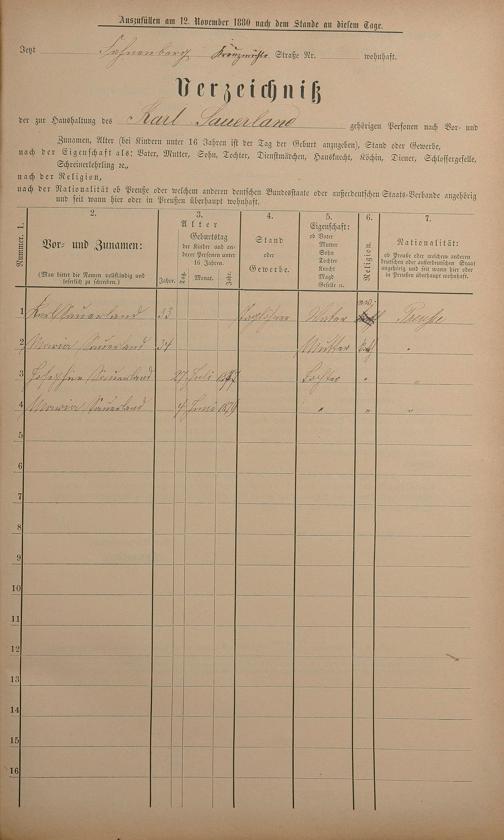 Auszufüllen am 12. November 1880 nach dem Stande an diesem Tage.
Jetzt Kreuzmühle Straße Nr. wohnhaft.
Verzeichniß
der zur Haushaltung des Karl Sauerland gehörigen Personen nach Vor- und
Zunamen, Alter (bei Kindern unter 16 Jahren ist der Tag der Geburt anzugeben), Stand oder Gewerbe,
nach der Eigenschaft als: Vater, Mutter, Sohn, Tochter, Dienstmädchen, Hausknecht, Köchin, Diener, Schlossergeselle,
Schreinerlehrling ec.,
nach der Religion,
nach der Nationalität ob Preuße oder welchem anderen deutschen Bundesstaate oder außerdeutschen Staats-Verbande angehörig
und seit wann hier oder in Preußen überhaupt wohnhaft.
Nummer. 1.
2.
Vor- und Zunamen:
(Man bittet die Namen vollständig und
leserlich zu schreiben.)
3.
Alter
Geburtstag
der Kinder und an-
derer Personen unter
16 Jahren.
Jahre.
Tag.
Monat.
Jahr.
4.
Stand
oder
Gewerbe.
5.
Eigenschaft:
ob Vater
Mutter
Sohn
Tochter
Knecht
Magd
Geselle u.
6.
Religion.
7.
Nationalität:
ob Preuße oder welchem anderen
deutschen oder außerdeutschen Staat
angehörig und seit wann hier oder
in Preußen überhaupt wohnhaft.
1 Karl Sauerland 33 Taglöhner Vater ev. Preuße
2 Maria Sauerland 34 Mutter "
3 Josephine Sauerland 27 Juli 1877 Tochter " "
4 Maria Sauerland 4 Juni 1879 " " "
5
6
7
8
9
10
11
12
13
14
15
16